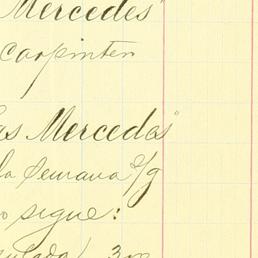 Mercedes"
Carpinter
as Mercedes"
la Semana s/g
o sigue: